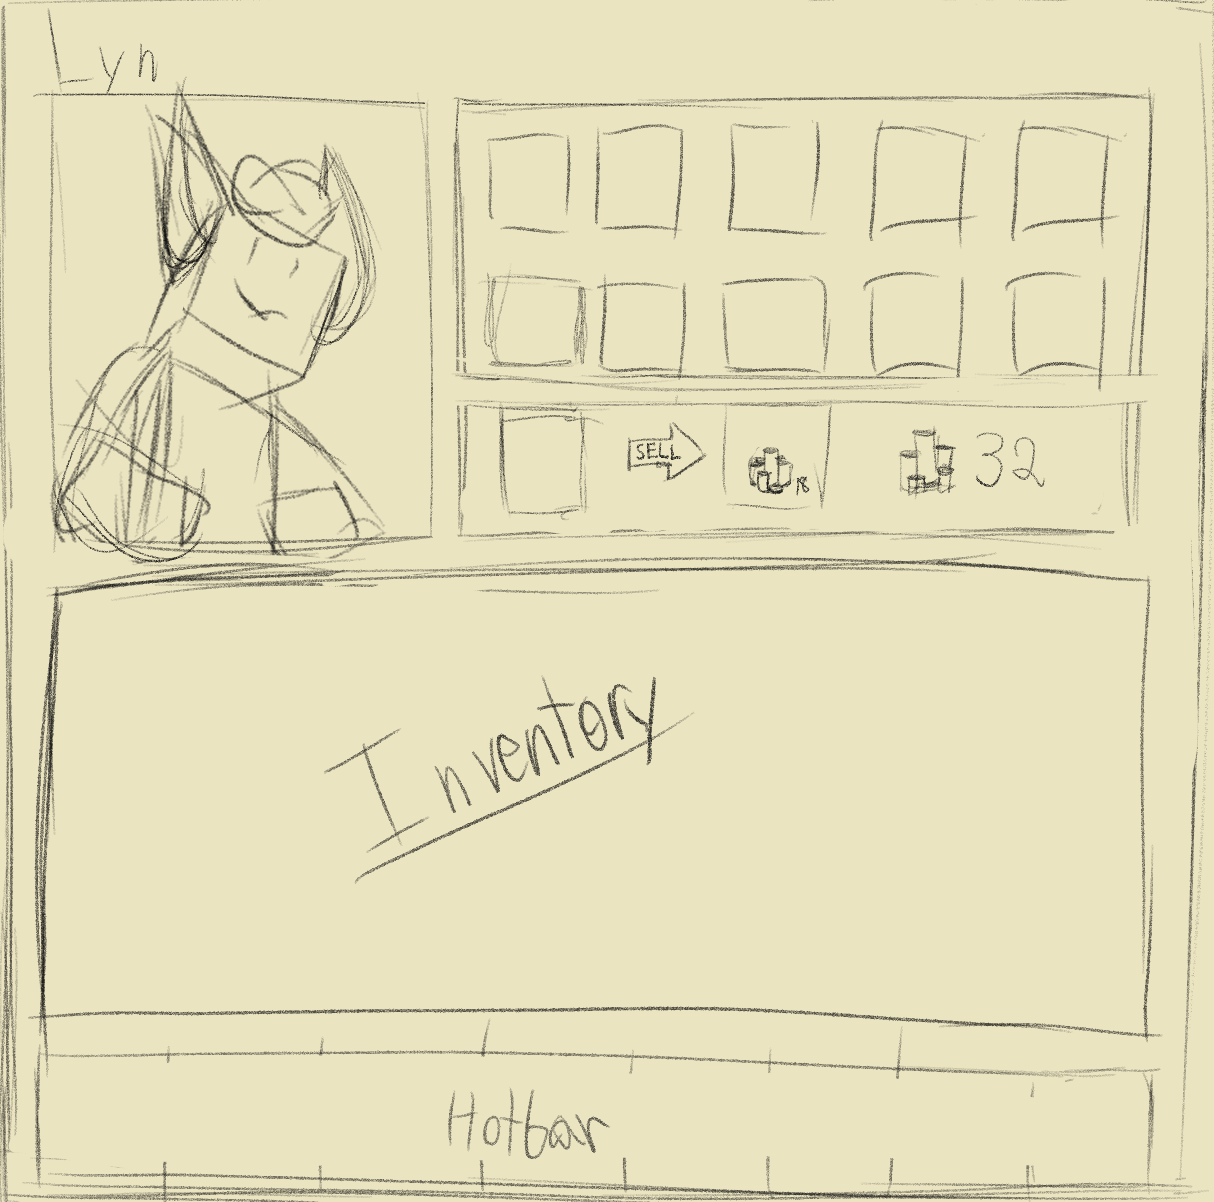 Lyn
SELL
18
32
Inventory
Hotbar